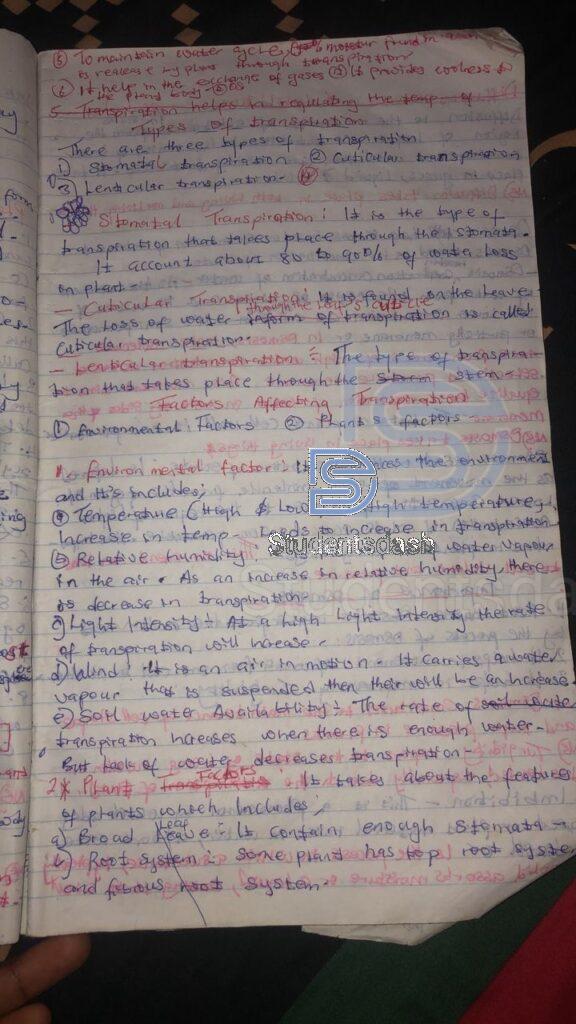 ⑤ To maintain water cycle,
is realease by plant through transpiration
⑥ It help in the exchange of gases ⑦ It provides coolness to
the plant body
5. Transpiration helps in regulating the temp. of
Types of transpiration
There are three types of transpiration
1) Stomatal transpiration ② Cuticular transpiration
3) Lenticular transpiration.
Stomatal Transpiration: It is the type of
transpiration that takes place through the stomata.
It account about 80 to 90% of water loss
on plant.
- Cuticular Transpiration: It is found on the Leave
through the leaf's cuticle
The Loss of water inform of transpiration is called
Cuticular transpiration.
- Lenticular transpiration: The type of transpira-
tion that takes place through the stem.
Factors Affecting Transpiration
① Environmental Factors ② Plant's factors
1. Environmental factor: It the environment
and it's includes;
ⓐ Temperature (High & Low High temperature
Increase in temp. Leads to increase in transpiration
ⓑ Relative humidity: water vapour
in the air. As an increase in relative humidity there
is decrease in transpiration
c) Light Intensity: At a high Light intensity the rate
of transpiration will increase.
d) Wind: It is an air in motion. It carries a water
vapour that is suspended then their will be an increase
e) Soil water Availability: The rate of soil water
transpiration increases when there is enough water.
But lack of water decreases transpiration.
2* Plant Factors: It takes about the features
of plants which Includes;
a) Broad Leaf: It contain enough stomata
b) Root System: some plant has tap root system
and fibrous root system.
Studentsdash